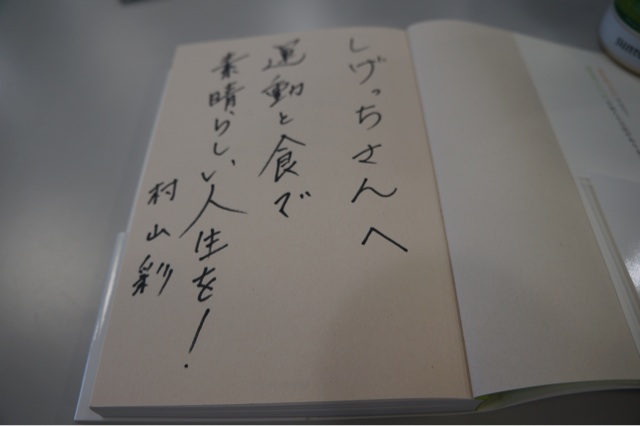 しげっちさんへ
運動と食で
素晴らしい人生を！
村山彩